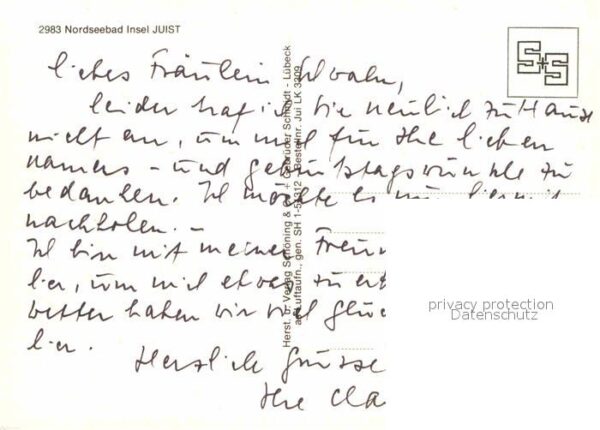 2983 Nordseebad Insel JUIST
S+S
liebes Fräulein Schwahn,
leider traf ich Sie neulich zu Hause
nicht an, um mich für Ihre lieben
namens- und geburtstagswünsche zu
bedanken. Ich möchte es nun hiermit
nachholen. -
Ich bin mit meiner Freun
hier, um mich etwas zu erh
wetter haben wir viel Glüc
hier.
Herzlich Grüsse
Ihre Cla
Herst. u. Verlag Schöning & Co + Gebrüder Schmidt - Lübeck
a. Luftaufn., gen. SH 1-5 312 Bestellnr. Jui LK 3209
privacy protection
Datenschutz